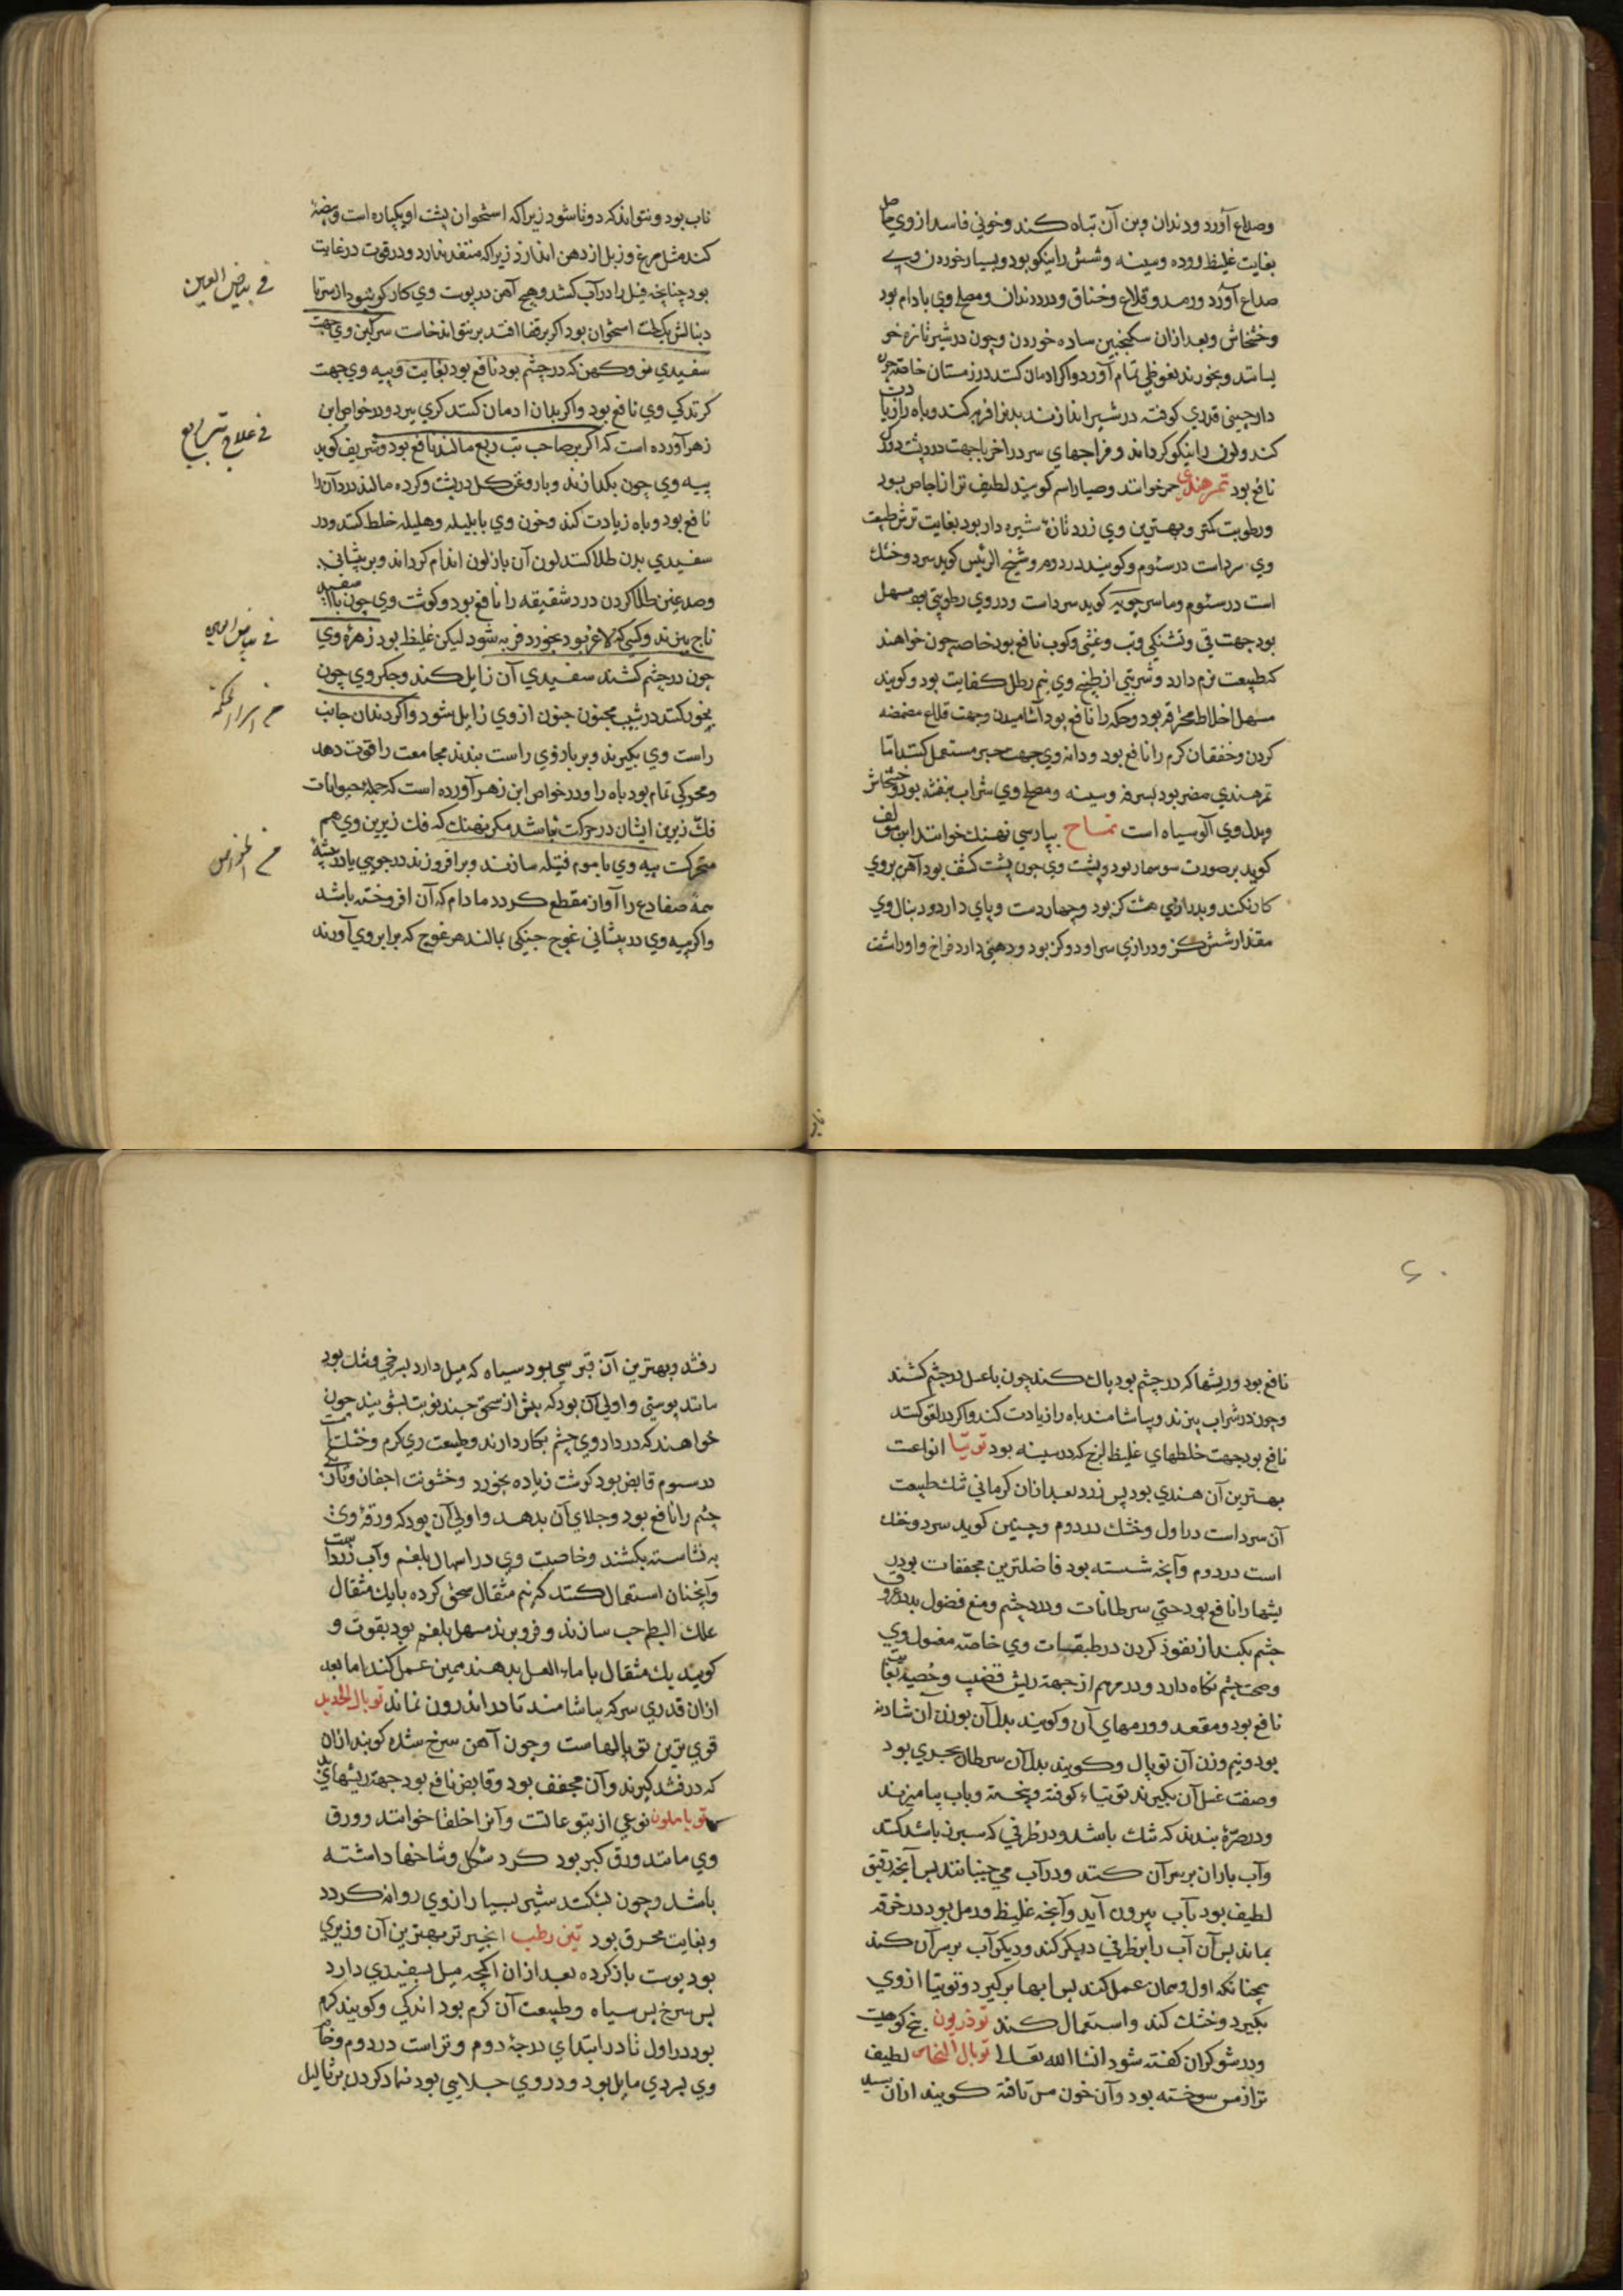 وصداع آورد ودندان وبن آن تباه کند وخونی فاسد ازوي حاصل
بغایت غلیظ ورده وسینه وشش را نیکو بود وبسیار خوردن وي
صداع آورد ورمد وقلاع وخناق ودرد دندان ومصلح وي بادام بود
وخشخاش وبعد ازان سکنجبین ساده خوردن وچون در شیر تازه
بخورند نعوظی تمام آورد واکر ادمان کنند در زمستان خاصه چون
دارچینی قدري کوفته در شیر اندازند بدنرا فربه کند وباه را زیادت
کند ولون را نیکو کرداند ومزاجهاي سرد را خرما جهت درد پشت
نافع بود تمر هندي حمر خوانند وصبارا هم کویند لطیف تر از اجاص بود
ورطوبت کمتر وبهترین وي زرد تازۀ شیره دار بود بغایت ترش طبیعت
وي سردست در سئوم وکویند در دوم وشیخ الرئیس کوید سرد وخشك
است در سئوم وماسرجویه کوید سردست ودروي رطوبتی بود مسهل
بود جهت قی وتشنکی وتب وغشی وکرب نافع بود خاصه چون خواهند
که طبیعت نرم دارد وشربتی از طبیخ وي نیم رطل کفایت بود وکویند
مسهل اخلاط محترقه بود وحکه را نافع بود آشامیدن وجهت قلاع مضمضه
کردن وخفقان کرم را نافع بود ودانه وي جهت جبر مستعمل کنند اما
تمر هندي مضر بود بسرفه وسینه ومصلح وي شراب بنفشه بود وخشخاش
وبدل وي آلو سیاه است تمساح بپارسی نهنك خوانند ابن مولف
کوید بر صورت سوسمار بود وپشت وي چون پشت کشف بود آهن بروي
کار نکند وبدرازي هشت کز بود وچهار دست وپاي دارد ودنبال وي
مقدار شش کز ودرازي سر او دو کز بود ودهنی دارد فراخ واورا شصت
ناب بود ونتواند که دوتا شود زیرا که استخوان پشت او یکپاره است وبیضۀ
کند مثل مرغ وزبل از دهن اندازد زیرا که منفذ ندارد ودر قوت در غایت
بود چنانچه فیل را در آب کشد وهیچ آهن در پوست وي کار کر نشود از سر تا
دنبالش یك لخت استخوان بود اکر بر قفا افتد بر نتواند خاست سرکین وي جهت
سفیدي نو وکهن که در چشم بود نافع بود بغایت وپیه وي جهت
کزندکی وي نافع بود واکر بدان ادمان کنند کري ببرد ودر خواص ابن
زهر آورده است که اکر بر صاحب تب ربع مالند نافع بود وشریف کوید
پیه وي چون بکدازند وبا روغن کل در پشت وکرده مالند درد آنرا
نافع بود وباه زیادت کند وخون وي با بلیله وهلیله خلط کنند ودر
سفیدي بدن طلا کنند لون آن باز لون اندام کرداند وبر پیشانی
وصدغین طلا کردن درد شقیقه را نافع بود وکوشت وي چون باسفید
ناج بپزند وکسی که لاغر بود بخورد فربه شود لیکن غلیظ بود زهرۀ وي
چون در چشم کشند سفیدي آن زایل کند وجکر وي چون
بخور کنند در شیب مجنون جنون از وي زایل شود واکر دندان جانب
راست وي بکیرند وبر بازوي راست بندند مجامعت را قوت دهد
ومحرکی تمام بود باه را ودر خواص ابن زهر آورده است که جمله حیوانات
فك زیرین ایشان در حرکت باشد مکر نهنك که فك زیرین وي هم
متحرکست پیه وي با موم فتیله سازند وبر افروزند در جویی یا در بیشۀ
همه ضفادع را آواز منقطع کردد مادام که آن افروخته باشد
واکر پیه وي در پیشانی غوج جنکی مالند هر غوج که برابر وي آورند
في بیاض العین
في علاج تب ربع
في الخواص
٤٠
نافع بود وریشها که در چشم بود پاك کند چون با عسل در چشم کشند
وچون در شراب بپزند وبیاشامند باه را زیادت کند واکر در لعوق کنند
نافع بود جهت خلطهاي غلیظ لزج که در سینه بود توتیا انواعست
بهترین آن هندي بود پس زرد بعد ازان کرمانی تنك طبیعت
آن سردست در اول وخشك در دوم وحنین کوید سرد وخشك
است در دوم وآنچه شسته بود فاضلترین مجففات بود
ریشها را نافع بود حتی سرطانات ودرد چشم ومنع فضول بد در عروق
چشم بکند از نفوذ کردن در طبقات وي خاصه مغسول وي
وصحت چشم نکاه دارد ودر مرهم از جهت ریش قضیب وخصیه بغایت
نافع بود ومقعد وورمهاي آن وکویند بدل آن بوزن آن شادنه
بود ونیم وزن آن توبال وکویند بدل آن سرطان بحري بود
وصفت غسل آن بکیرند توتیاء کوفته وپخته وباب بیامیزند
ودر صرۀ بندند که تنك باشد ودر ظرفی که سبز باشد کنند
وآب باران بر سر آن کنند ودر آب می جنبانند پس آنچه رقیق
لطیف بود بآب بیرون آید وآنچه غلیظ ورمل بود در خرقه
بماند پس آن آب را بر ظرفی دیکر کند ودیکر آب بر سر آن کند
همچنانکه اول وهمان عمل کند پس ابها بر کیرد وتوتیا از وي
بکیرد وخشك کند واستعمال کند توذریون بیخ کوهیست
ودر شوکران کفته شود انشا الله تعالی توبال النحاس لطیف
تر از مس سوخته بود وآن خون مس تافته کویند ازان
رفشد وبهترین آن قبرسی بود سیاه که میل دارد بسرخی وتنك بود
مانند پوستی واولی آن بود که پیش از سحق چند نوبت بشویند چون
خواهند که در داروي چشم بکار دارند وطبیعت وي کرم وخشکست
در سیوم قابض بود کوشت زیاده بخورد وخشونت اجفان
چشم را نافع بود وجلاي آن بدهد واولی آن بود که ورقۀ وي
به نشاسته بکشند وخاصیت وي در اسهال بلغم وآب زردست
وآنچنان استعمال کنند که نیم مثقال سحق کرده با یك مثقال
علك البطم حب سازند وفرو برند مسهل بلغم بود بقوت و
کویند یك مثقال با ماء العسل بدهند همین عمل کند اما بعد
ازان قدري سرکه بیاشامند تا در اندرون نماند توبال الحدید
قوي ترین توبالهاست وچون آهن سرخ شده کوبند ازان
که در فشد کیرند وآن مجفف بود وقابض نافع بود جهت ریشهاي
توباملون نوعی از یتوعاتست وآنرا خلفا خوانند وورق
وي مانند ورق کبر بود کرد شکل وشاخها داشته
باشد وچون بشکنند شیر بسیار ازوي روانه کردد
وبغایت محرق بود تین رطب انجیر تر بهترین آن وزیري
بود پوست باز کرده بعد ازان آنچه میل بسفیدي دارد
پس سرخ پس سیاه وطبیعت آن کرم بود اندکی وکویند کرم
بود در اول تا در ابتداي درجۀ دوم وتر است در دوم
وي بسردي مایل بود ودروي جلایی بود ضماد کردن بر ثالیل